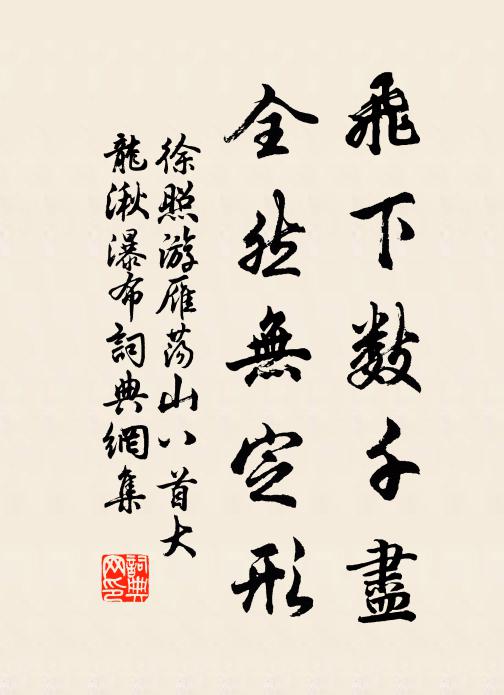 飛下数千盡
全然無定形
徐照游雁荡山八首大
龍湫瀑布詞典網集
詞典
网印